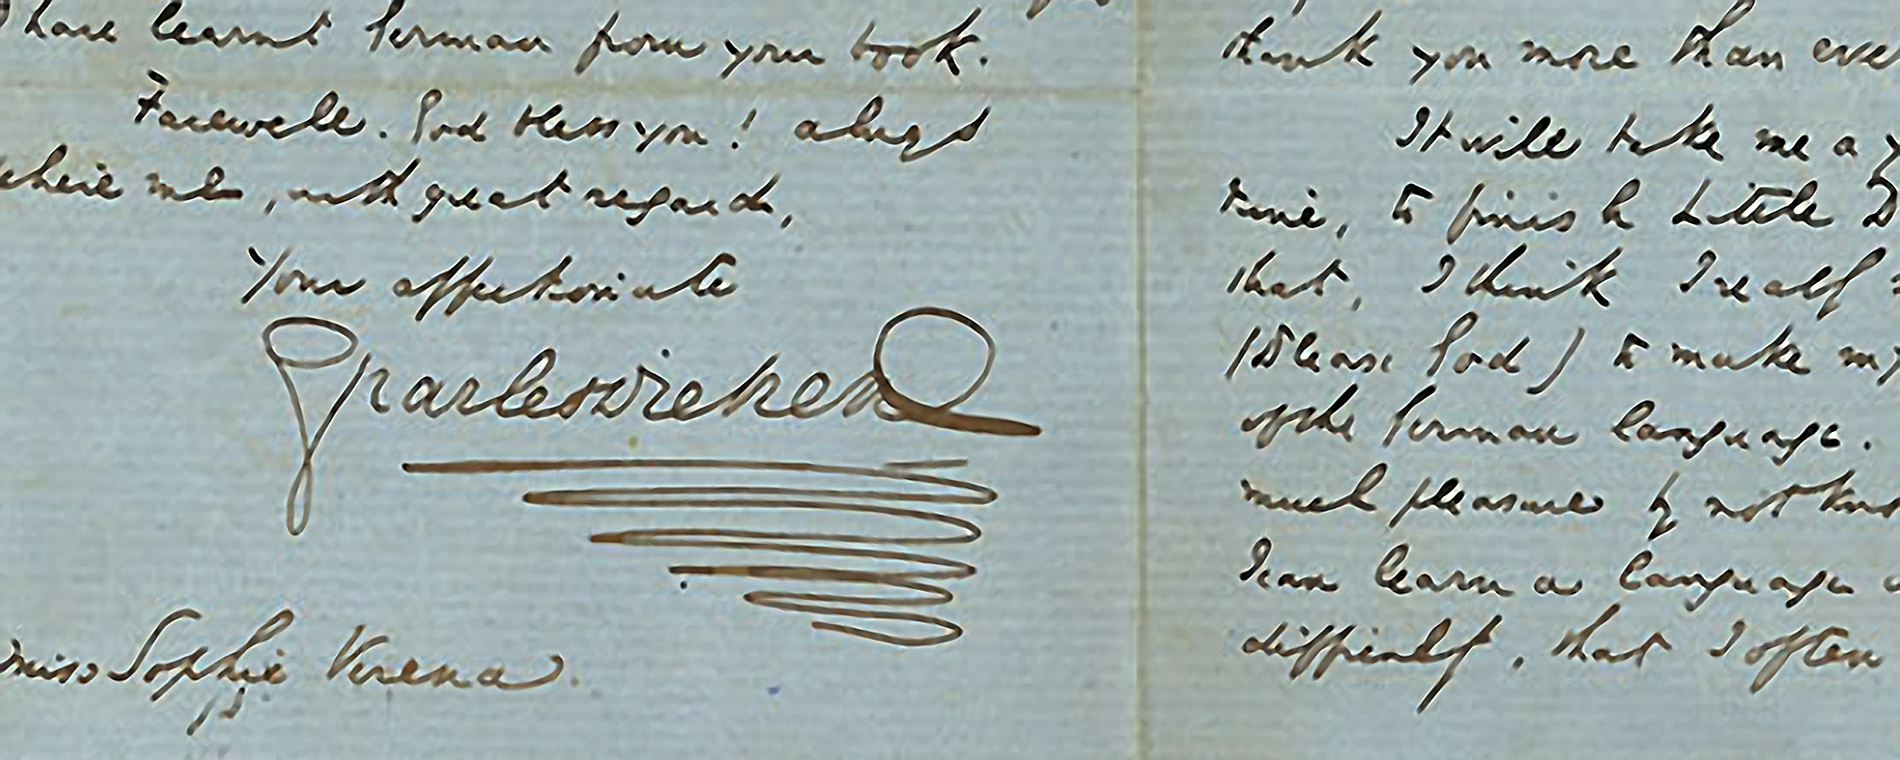 have learnt German from your book.
Farewell. God bless you! always
me, with great regard,
Your affectionate
Charles Dickens
Miss Sophie Verena.
thank you more than eve
It will take me a y
time, to finish Little D
that, I think I really
(Please God) to make my
of the German language.
much pleasure by not kno
I can learn a language
difficulty, that I often